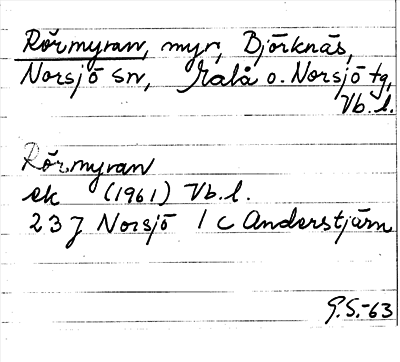 Rörmyran, myr, Björknäs,
Norsjö sn, Malå o. Norsjö tg,
Vb. l.
Rörmyran
ek (1961) Vb. l.
23J Norsjö 1 c Anderstjärn
G.S.-63